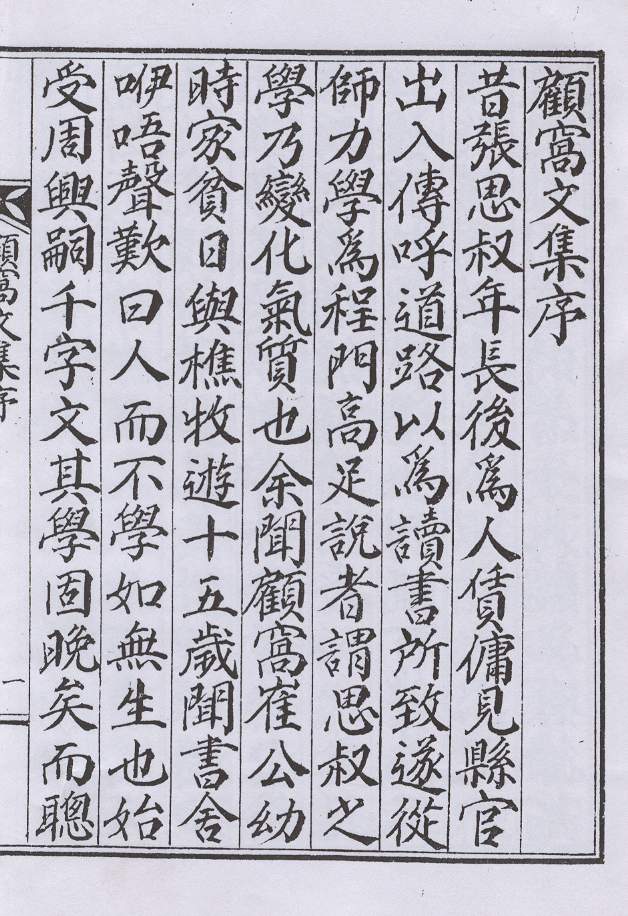 顧窩文集序
昔張思叔年長後爲人賃傭見縣官
出入傳呼道路以爲讀書所致遂從
師力學爲程門高足說者謂思叔之
學乃變化氣質也余聞顧窩崔公幼
時家貧日與樵牧遊十五歲聞書舍
咿唔聲歎曰人而不學如無生也始
受周興嗣千字文其學固晚矣而聰
顧窩文集序
一